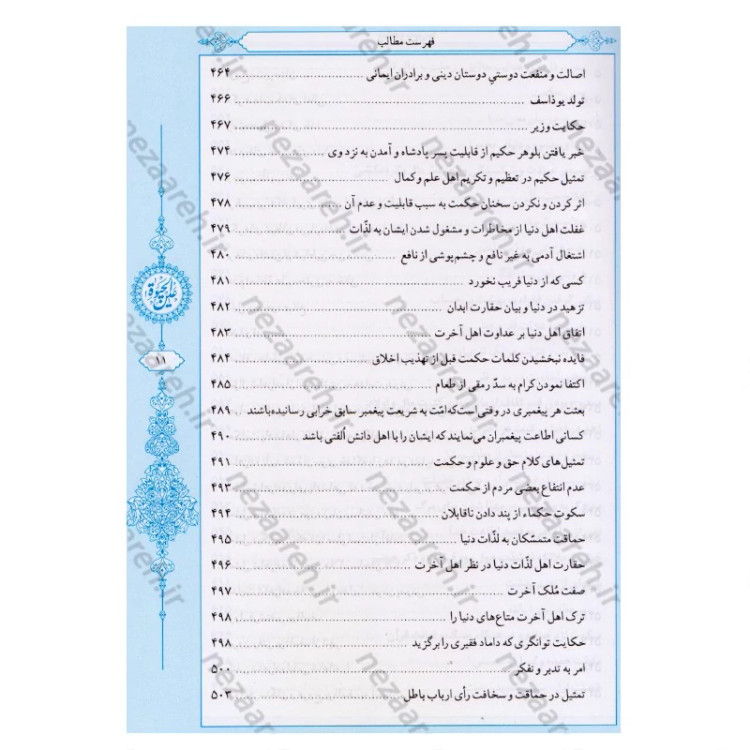 فهرست مطالب
اصالت و منفعت دوستیِ دوستان دینی و برادران ایمانی ۴۶۴
تولد یوذاسف ۴۶۶
حکایت وزیر ۴۶۷
خبر یافتن بلوهر حکیم از قابلیت پسر پادشاه و آمدن به نزد وی ۴۷۴
تمثیل حکیم در تعظیم و تکریم اهل علم و کمال ۴۷۶
اثر کردن و نکردن سخنان حکمت به سبب قابلیت و عدم آن ۴۷۸
غفلت اهل دنیا از مخاطرات و مشغول شدن ایشان به لذّات ۴۷۹
اشتغال آدمی به غیر نافع و چشم‌پوشی از نافع ۴۸۰
کسی که از دنیا فریب نخورد ۴۸۱
تزهید در دنیا و بیان حقارت ابدان ۴۸۲
اتفاق اهل دنیا بر عداوت اهل آخرت ۴۸۳
فایده نبخشیدن کلمات حکمت قبل از تهذیب اخلاق ۴۸۴
اکتفا نمودن کرام به سدّ رمقی از طعام ۴۸۵
بعثت هر پیغمبری در وقتی است‌که امّت به شریعت پیغمبر سابق خرابی رسانیده‌باشند ۴۸۹
کسانی اطاعت پیغمبران می‌نمایند که ایشان را با اهل دانش اُلفتی باشد ۴۹۰
تمثیل‌های کلام حق و علوم و حکمت ۴۹۱
عدم انتفاع بعضی مردم از حکمت ۴۹۳
سکوت حکماء از پند دادن ناقابلان ۴۹۴
حماقت متمسّکان به لذّات دنیا ۴۹۵
حقارت اهل لذّات دنیا در نظر اهل آخرت ۴۹۶
صفت مُلک آخرت ۴۹۷
ترک اهل آخرت متاع‌های دنیا را ۴۹۸
حکایت توانگری که داماد فقیری را برگزید ۴۹۸
امر به تدبر و تفکر ۵۰۰
تمثیل در حماقت و سخافت رأی ارباب باطل ۵۰۳
عین الحیوة
۱۱
nezaareh.ir